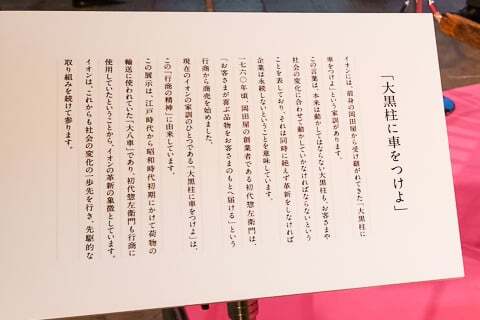 「大黒柱に車をつけよ」
イオンには、前身の岡田屋から受け継がれてきた「大黒柱に
車をつけよ」という家訓があります。
この言葉は、本来は動かしてはならない大黒柱も、お客さまや
社会の変化に合わせて動かしていかなければならないという
ことを表しており、それは同時に絶えず革新をしなければ
企業は永続しないということを意味しています。
一七六〇年頃、岡田屋の創業者である初代惣左衛門は、
「お客さまが喜ぶ品物をお客さまのもとへ届ける」という
行商から商売を始めました。
現在のイオンの家訓のひとつである「大黒柱に車をつけよ」は、
この「行商の精神」に由来しています。
この展示は、江戸時代から昭和時代初期にかけて荷物の
輸送に使われていた「大八車」であり、初代惣左衛門も行商に
使用していたということから、イオンの革新の象徴としています。
イオンは、これからも社会の変化の一歩先を行き、先駆的な
取り組みを続けて参ります。